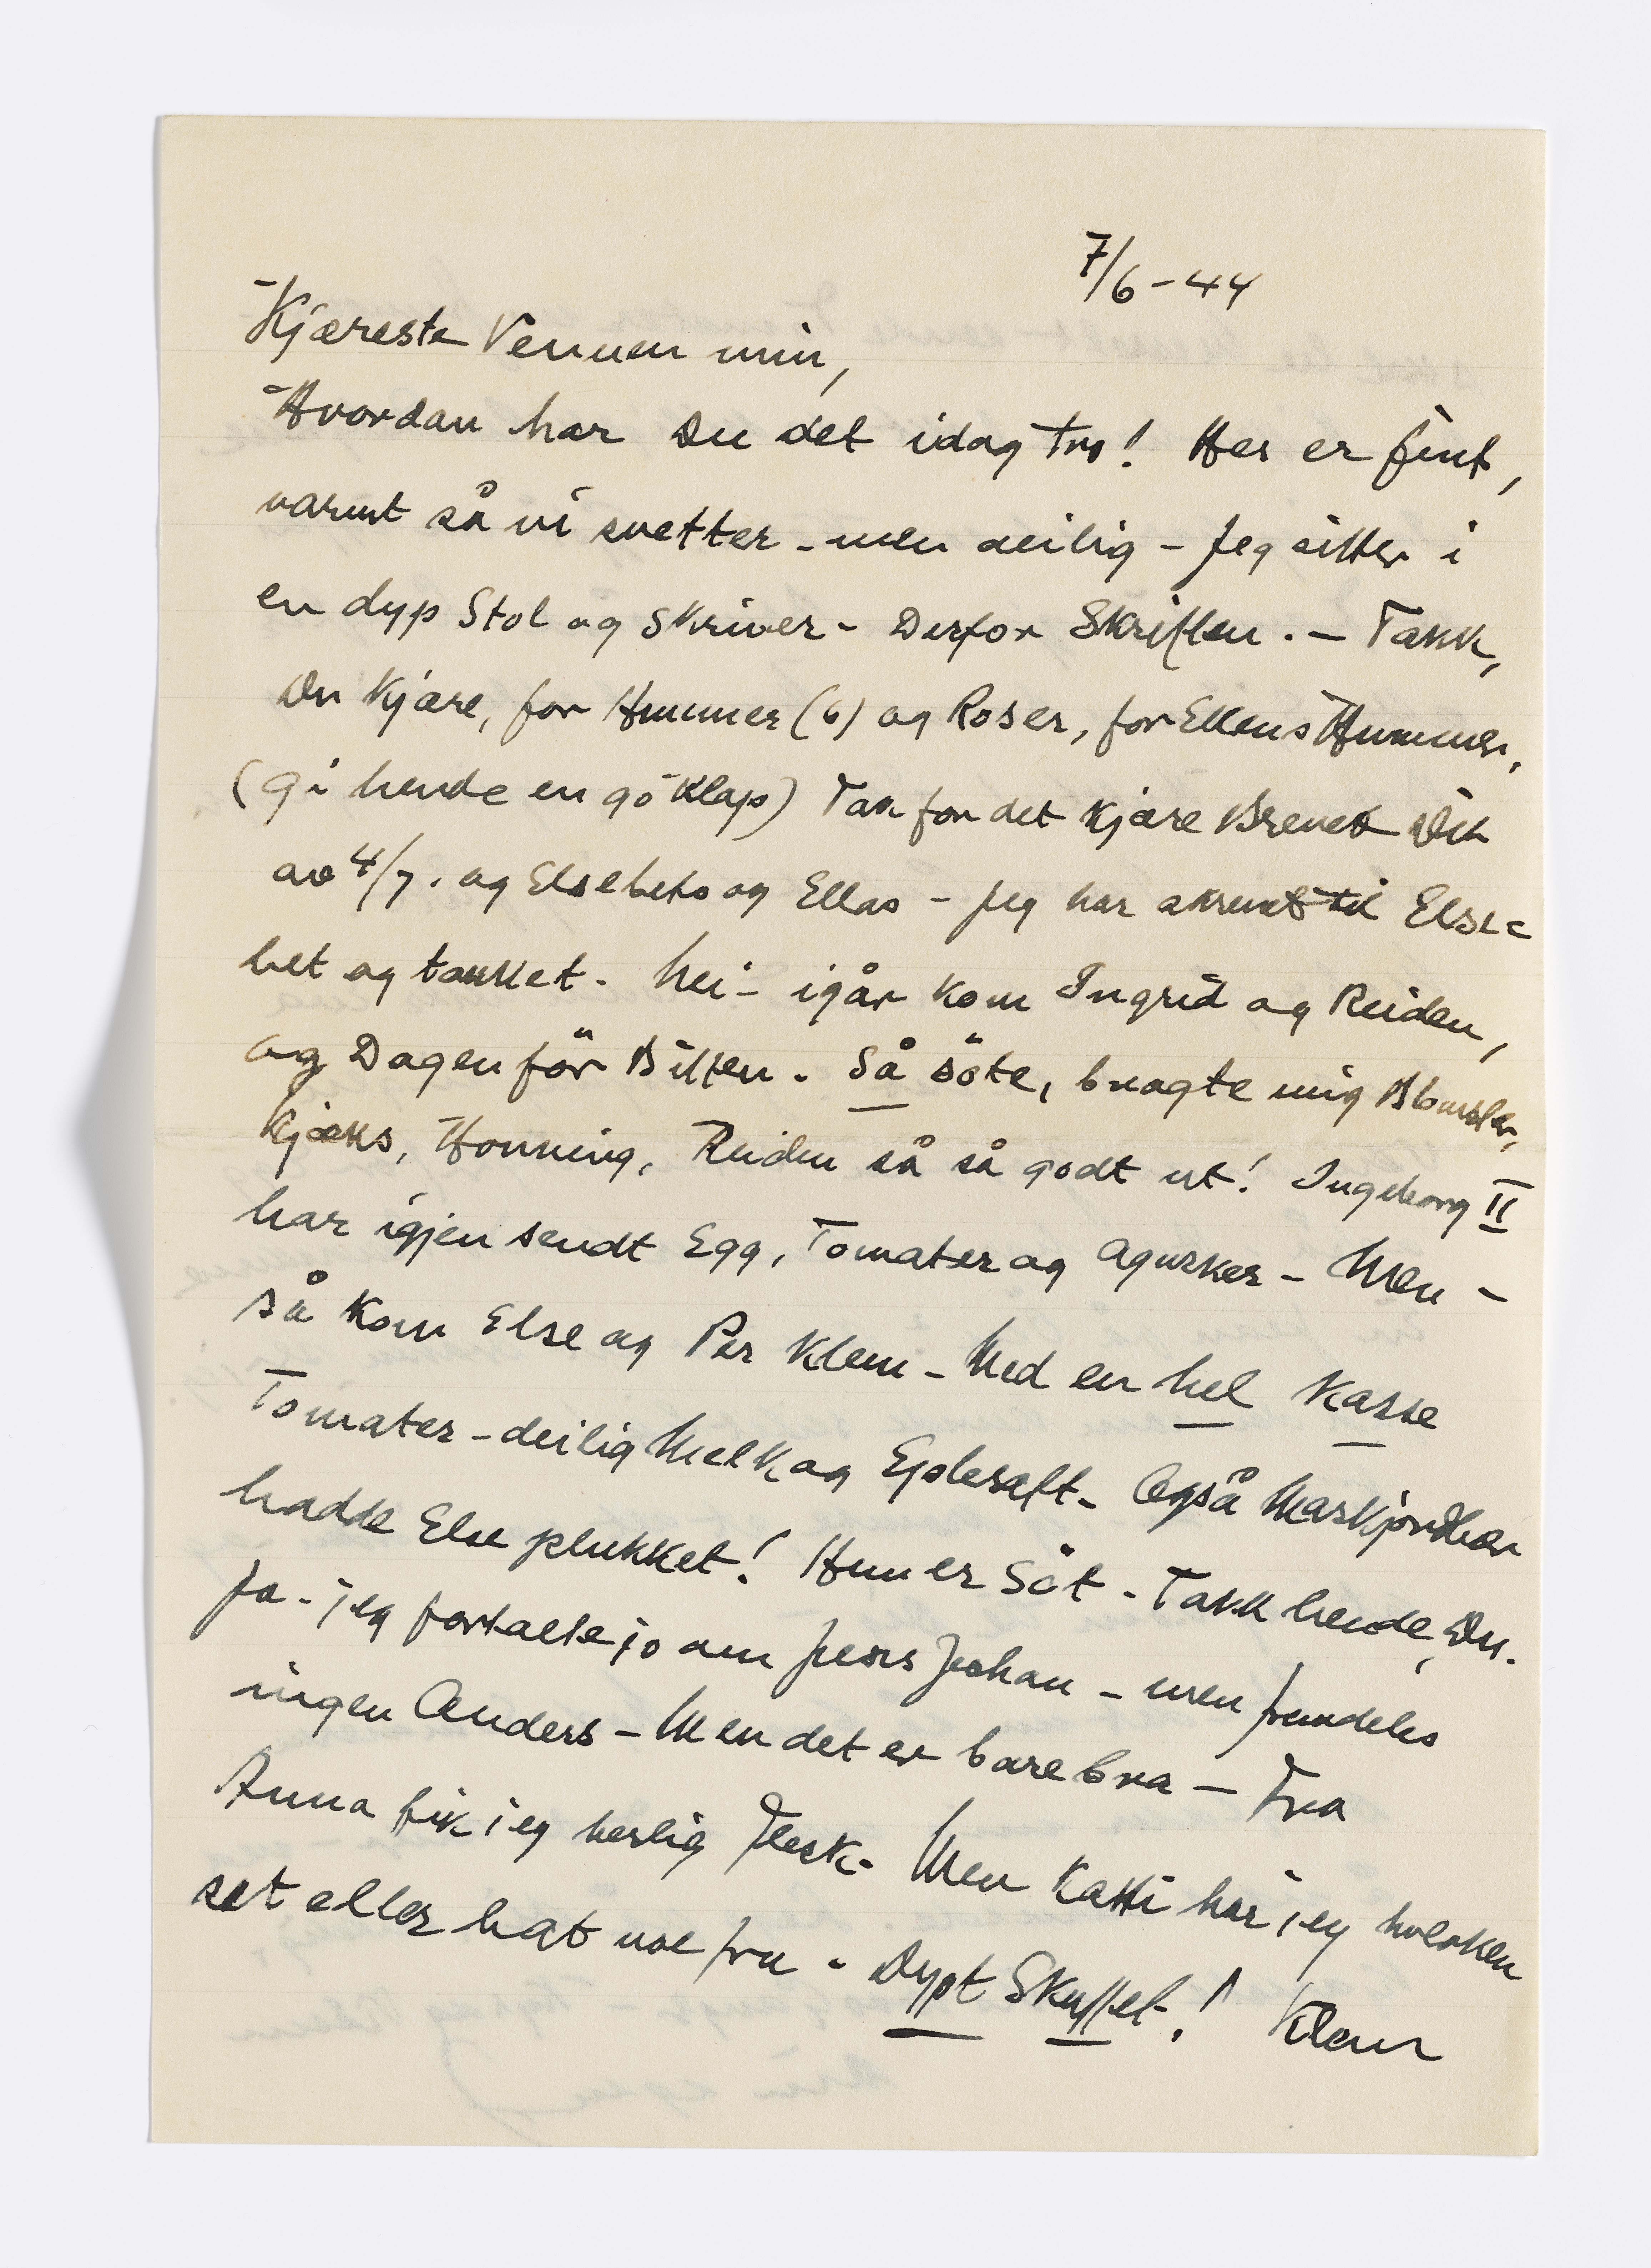 7/6-44
Kjæreste Vennen min,
Hvordan har Du det idag tro! Her er fint,
varmt så vi svetter - men deilig - Jeg sitter i
en dyp Stol og Skriver - Derfor Skriften. - Takk,
Du Kjære, for Hummer (6) og Roser, for Ellens Hummer,
(gi hende en gö Klap) Tak for det Kjære Brevet Dit
av 4/7. og Elsebets og Ellas - Jeg har skrevet til Else=
bet og takket. Nei - igår kom Ingrid og Reiden,
og Dagen för Bitten. Så söte, bragte mig Blomster,
Kjæks, Honning, Reiden så så godt ut! Ingeborg II
har igjen sendt Egg, Tomater og Agurker - Men -
så kom Else og Per Klem - Med en hel Kasse
Tomater - deilig Melk og Eplesaft - Også Markjordbær
hadde Else plukket! Hun er Söt - Takk hende, Du.
Ja - jeg fortalte jo om Jens Johan - men fremdeles
ingen Anders - Men det er bare bra - Fra
Anna fik jeg herlig Flesk. Men Katti har jeg hverken
set eller hat noe fra - Dypt Skuffet! Klem